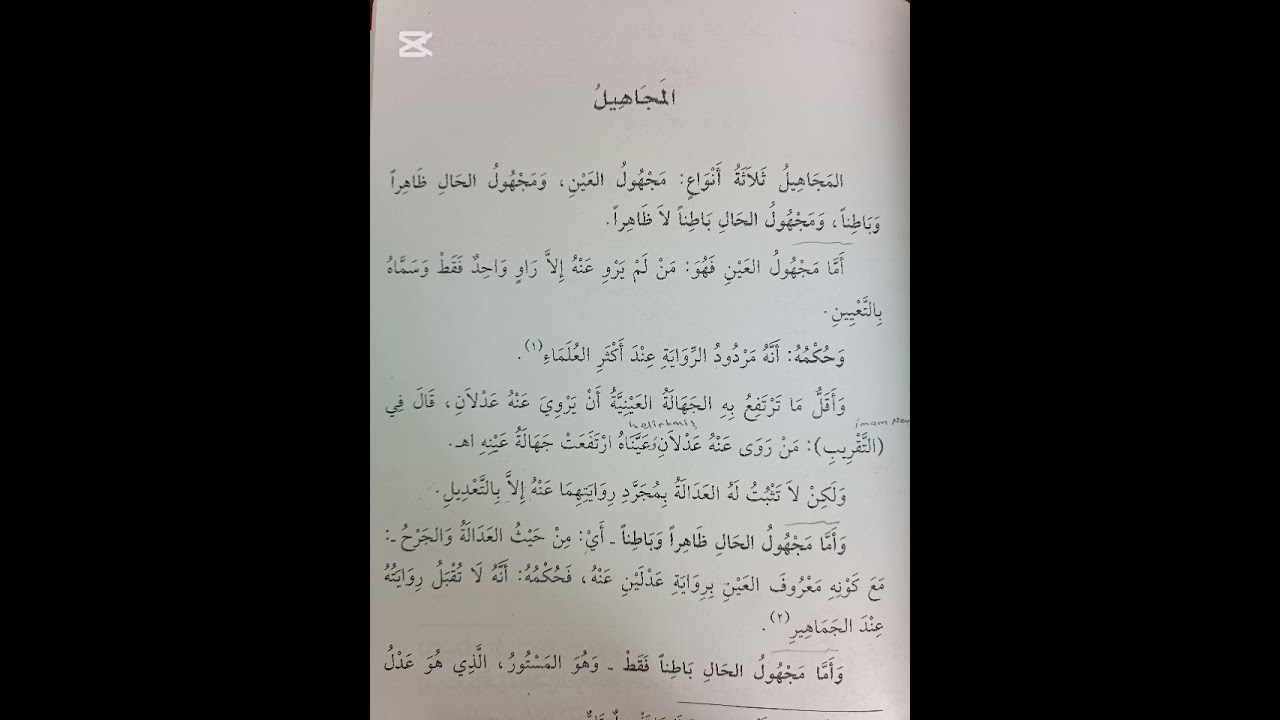 المَجَاهِيلُ
المَجَاهِيلُ ثَلاَثَةُ أَنْوَاعٍ: مَجْهُولُ العَيْنِ، وَمَجْهُولُ الحَالِ ظَاهِراً
وَبَاطِناً، وَمَجْهُولُ الحَالِ بَاطِناً لاَ ظَاهِراً.
أَمَّا مَجْهُولُ العَيْنِ فَهُوَ: مَنْ لَمْ يَرْوِ عَنْهُ إِلاَّ رَاوٍ وَاحِدٌ فَقَطْ وَسَمَّاهُ
بِالتَّعْيِينِ.
وَحُكْمُهُ: أَنَّهُ مَرْدُودُ الرِّوَايَةِ عِنْدَ أَكْثَرِ العُلَمَاءِ(١).
وَأَقَلُّ مَا تَرْتَفِعُ بِهِ الجَهَالَةُ العَيْنِيَّةُ أَنْ يَرْوِيَ عَنْهُ عَدْلاَنِ، قَالَ فِي
imam Nev
belirtmiş
(التَّقْرِيبِ): مَنْ رَوَى عَنْهُ عَدْلاَنِ وَعَيَّنَاهُ ارْتَفَعَتْ جَهَالَةُ عَيْنِهِ اهـ.
وَلَكِنْ لاَ تَثْبُتُ لَهُ العَدَالَةُ بِمُجَرَّدِ رِوَايَتِهِمَا عَنْهُ إِلاَّ بِالتَّعْدِيلِ.
وَأَمَّا مَجْهُولُ الحَالِ ظَاهِراً وَبَاطِناً ـ أَيْ: مِنْ حَيْثُ العَدَالَةُ وَالجَرْحُ ـ:
مَعَ كَوْنِهِ مَعْرُوفَ العَيْنِ بِرِوَايَةِ عَدْلَيْنِ عَنْهُ، فَحُكْمُهُ: أَنَّهُ لَا تُقْبَلُ رِوَايَتُهُ
عِنْدَ الجَمَاهِيرِ(٢).
وَأَمَّا مَجْهُولُ الحَالِ بَاطِناً فَقَطْ ـ وَهُوَ المَسْتُورُ، الَّذِي هُوَ عَدْلُ